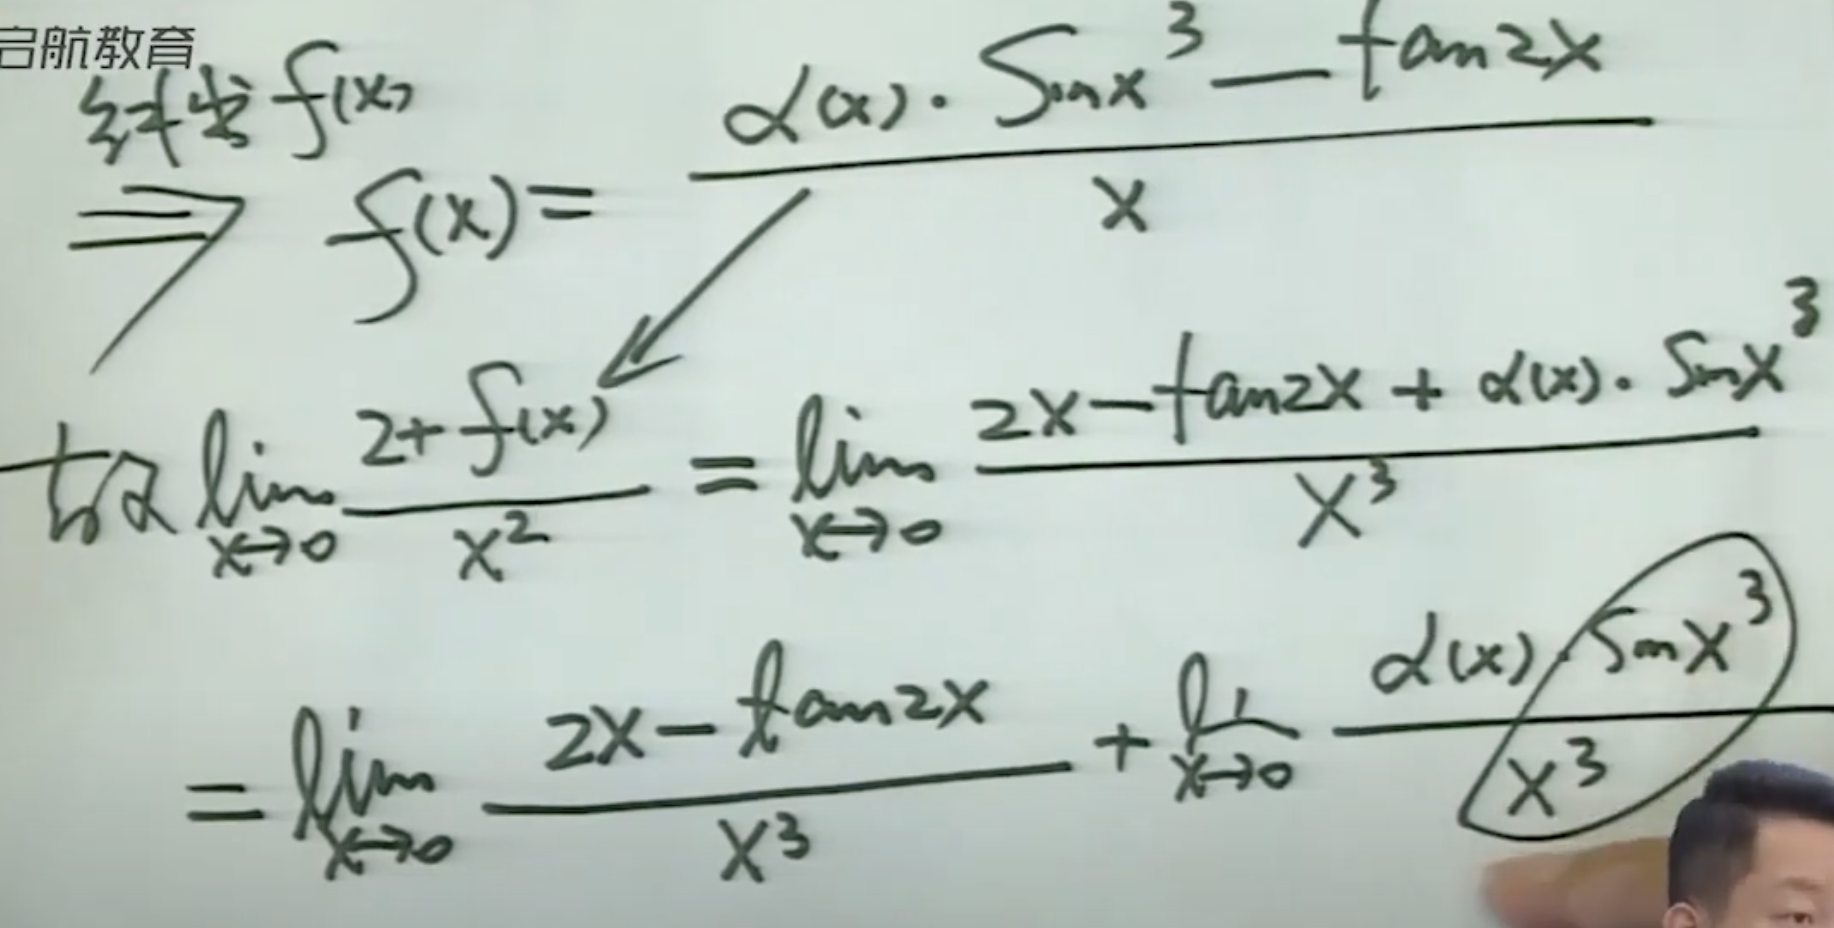 启航教育
解出 f(x)
⇒ f(x) = \frac{α(x)·sin x^3 − tan 2x}{x}
故 \lim_{x→0} \frac{2+f(x)}{x^2} = \lim_{x→0} \frac{2x − tan 2x + α(x)·sin x^3}{x^3}
= \lim_{x→0} \frac{2x − tan 2x}{x^3} + \lim_{x→0} \frac{α(x)·sin x^3}{x^3}